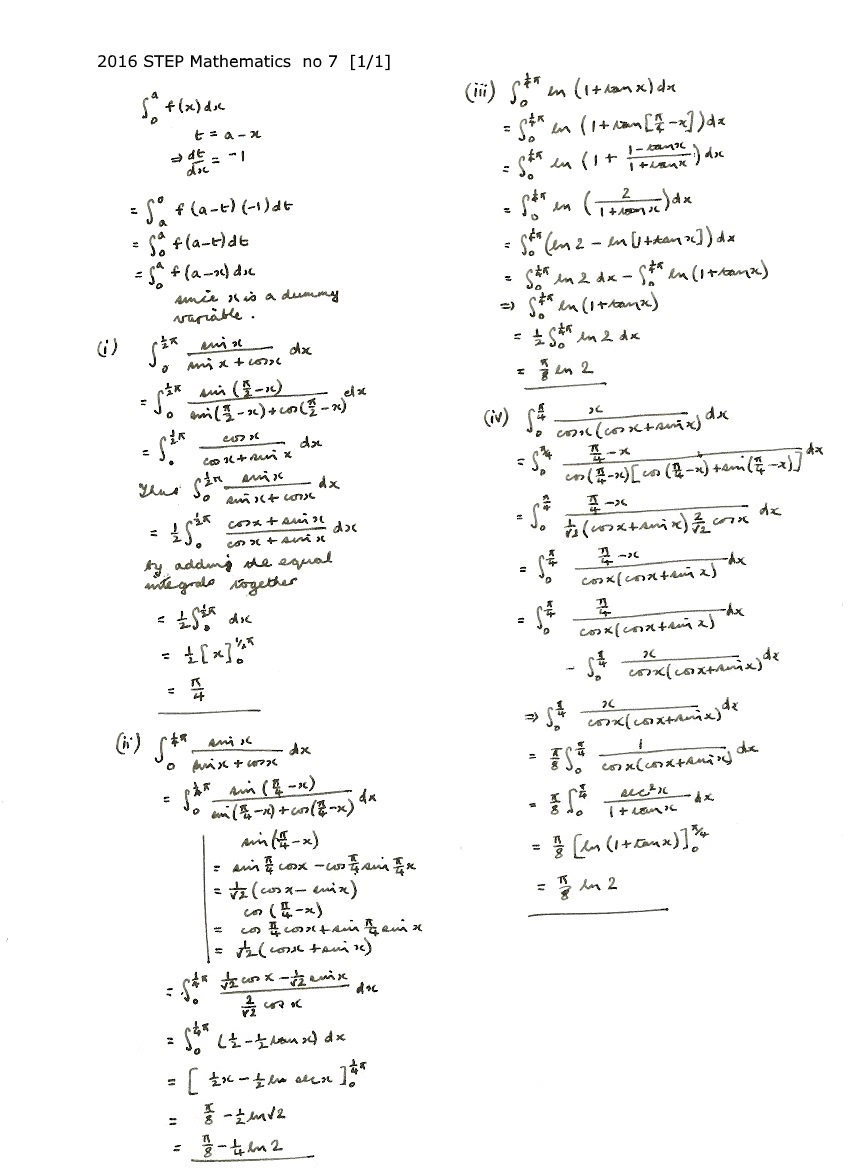 2016 STEP Mathematics no 7 [1/1]
∫₀^a f(x) dx
t = a - x
⇒ dt/dx = -1
= ∫_a^0 f(a-t) (-1) dt
= ∫₀^a f(a-t) dt
= ∫₀^a f(a-x) dx
since x is a dummy
variable.
(i) ∫₀^{½π} sin x / (sin x + cos x) dx
= ∫₀^{½π} sin(π/2 - x) / (sin(π/2 - x) + cos(π/2 - x)) dx
= ∫₀^{½π} cos x / (cos x + sin x) dx
Thus ∫₀^{½π} sin x / (sin x + cos x) dx
= ½ ∫₀^{½π} (cos x + sin x) / (cos x + sin x) dx
by adding the equal
integrals together
= ½ ∫₀^{½π} dx
= ½ [x]₀^{½π}
= π/4
(ii) ∫₀^{¼π} sin x / (sin x + cos x) dx
= ∫₀^{¼π} sin(π/4 - x) / (sin(π/4 - x) + cos(π/4 - x)) dx
sin(π/4 - x)
= sin π/4 cos x - cos π/4 sin π/4 x
= 1/√2 (cos x - sin x)
cos(π/4 - x)
= cos π/4 cos x + sin π/4 sin x
= 1/√2 (cos x + sin x)
= ∫₀^{¼π} (1/√2 cos x - 1/√2 sin x) / (2/√2 cos x) dx
= ∫₀^{¼π} (½ - ½ tan x) dx
= [½x - ½ ln sec x]₀^{¼π}
= π/8 - ½ ln √2
= π/8 - ¼ ln 2
(iii) ∫₀^{¼π} ln (1 + tan x) dx
= ∫₀^{¼π} ln (1 + tan[π/4 - x]) dx
= ∫₀^{¼π} ln (1 + (1 - tan x)/(1 + tan x)) dx
= ∫₀^{¼π} ln (2/(1 + tan x)) dx
= ∫₀^{¼π} (ln 2 - ln[1 + tan x]) dx
= ∫₀^{¼π} ln 2 dx - ∫₀^{¼π} ln (1 + tan x)
⇒ ∫₀^{¼π} ln (1 + tan x)
= ½ ∫₀^{¼π} ln 2 dx
= π/8 ln 2
(iv) ∫₀^{π/4} x / (cos x (cos x + sin x)) dx
= ∫₀^{π/4} (π/4 - x) / (cos(π/4 - x)[cos(π/4 - x) + sin(π/4 - x)]) dx
= ∫₀^{π/4} (π/4 - x) / (1/√2 (cos x + sin x) 2/√2 cos x) dx
= ∫₀^{π/4} (π/4 - x) / (cos x (cos x + sin x)) dx
= ∫₀^{π/4} (π/4) / (cos x (cos x + sin x)) dx
- ∫₀^{π/4} x / (cos x (cos x + sin x)) dx
⇒ ∫₀^{π/4} x / (cos x (cos x + sin x)) dx
= π/8 ∫₀^{π/4} 1 / (cos x (cos x + sin x)) dx
= π/8 ∫₀^{π/4} sec² x / (1 + tan x) dx
= π/8 [ln (1 + tan x)]₀^{π/4}
= π/8 ln 2